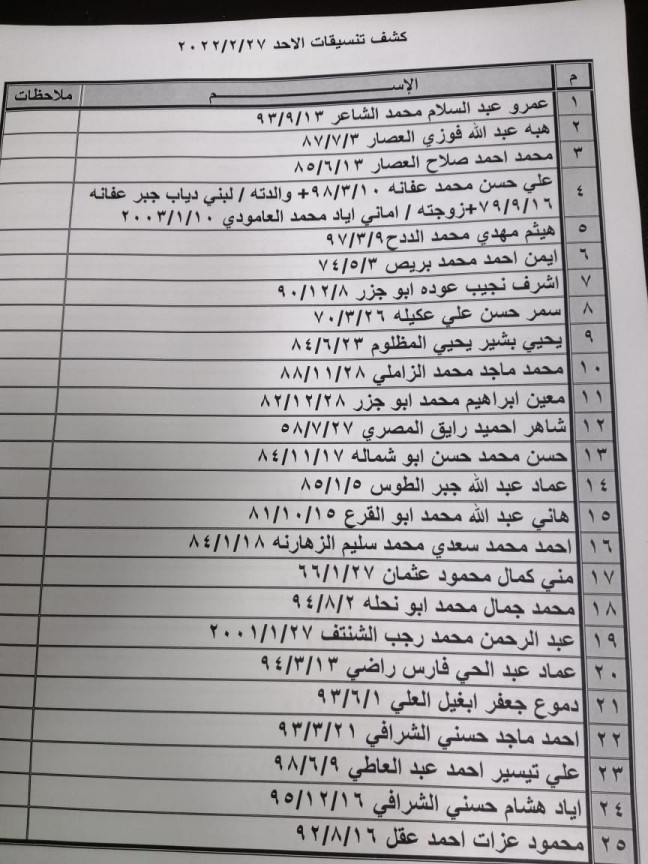 كشف تنسيقات الاحد ٢٠٢٢/٢/٢٧
م الإســـــم ملاحظات
١ عمرو عبد السلام محمد الشاعر ٩٣/٩/١٣
٢ هبه عبد الله فوزي العصار ٨٧/٧/٣
٣ محمد احمد صلاح العصار ٨٥/٦/١٣
٤ علي حسن محمد عفانه ٩٨/٣/١٠+ والدته / لبني دياب جبر عفانه
٧٩/٩/١٦+زوجته / اماني اياد محمد العامودي ٢٠٠٣/١/١٠
٥ هيثم مهدي محمد الددح٩٧/٣/٩
٦ ايمن احمد محمد بريص ٧٤/٥/٣
٧ اشرف نجيب عوده ابو جزر ٩٠/١٢/٨
٨ سمر حسن علي عكيله ٧٠/٣/٢٦
٩ يحيي بشير يحيي المظلوم ٨٤/٦/٢٣
١٠ محمد ماجد محمد الزاملي ٨٨/١١/٢٨
١١ معين ابراهيم محمد ابو جزر ٨٢/١٢/٢٨
١٢ شاهر احميد رايق المصري ٥٨/٧/٢٧
١٣ حسن محمد حسن ابو شماله ٨٤/١١/١٧
١٤ عماد عبد الله جبر الطوس ٨٥/١/٥
١٥ هاني عبد الله محمد ابو القرع ٨١/١٠/١٥
١٦ احمد محمد سعدي محمد سليم الزهارنه ٨٤/١/١٨
١٧ مني كمال محمود عثمان ٦٦/١/٢٧
١٨ محمد جمال محمد ابو نحله ٩٤/٨/٢
١٩ عبد الرحمن محمد رجب الشنتف ٢٠٠١/١/٢٧
٢٠ عماد عبد الحي فارس راضي ٩٤/٣/١٣
٢١ دموع جعفر ابغيل العلي ٩٣/٦/١
٢٢ احمد ماجد حسني الشرافي ٩٣/٣/٢١
٢٣ علي تيسير احمد عبد العاطي ٩٨/٦/٩
٢٤ اياد هشام حسني الشرافي ٩٥/١٢/١٦
٢٥ محمود عزات احمد عقل ٩٢/٨/١٦